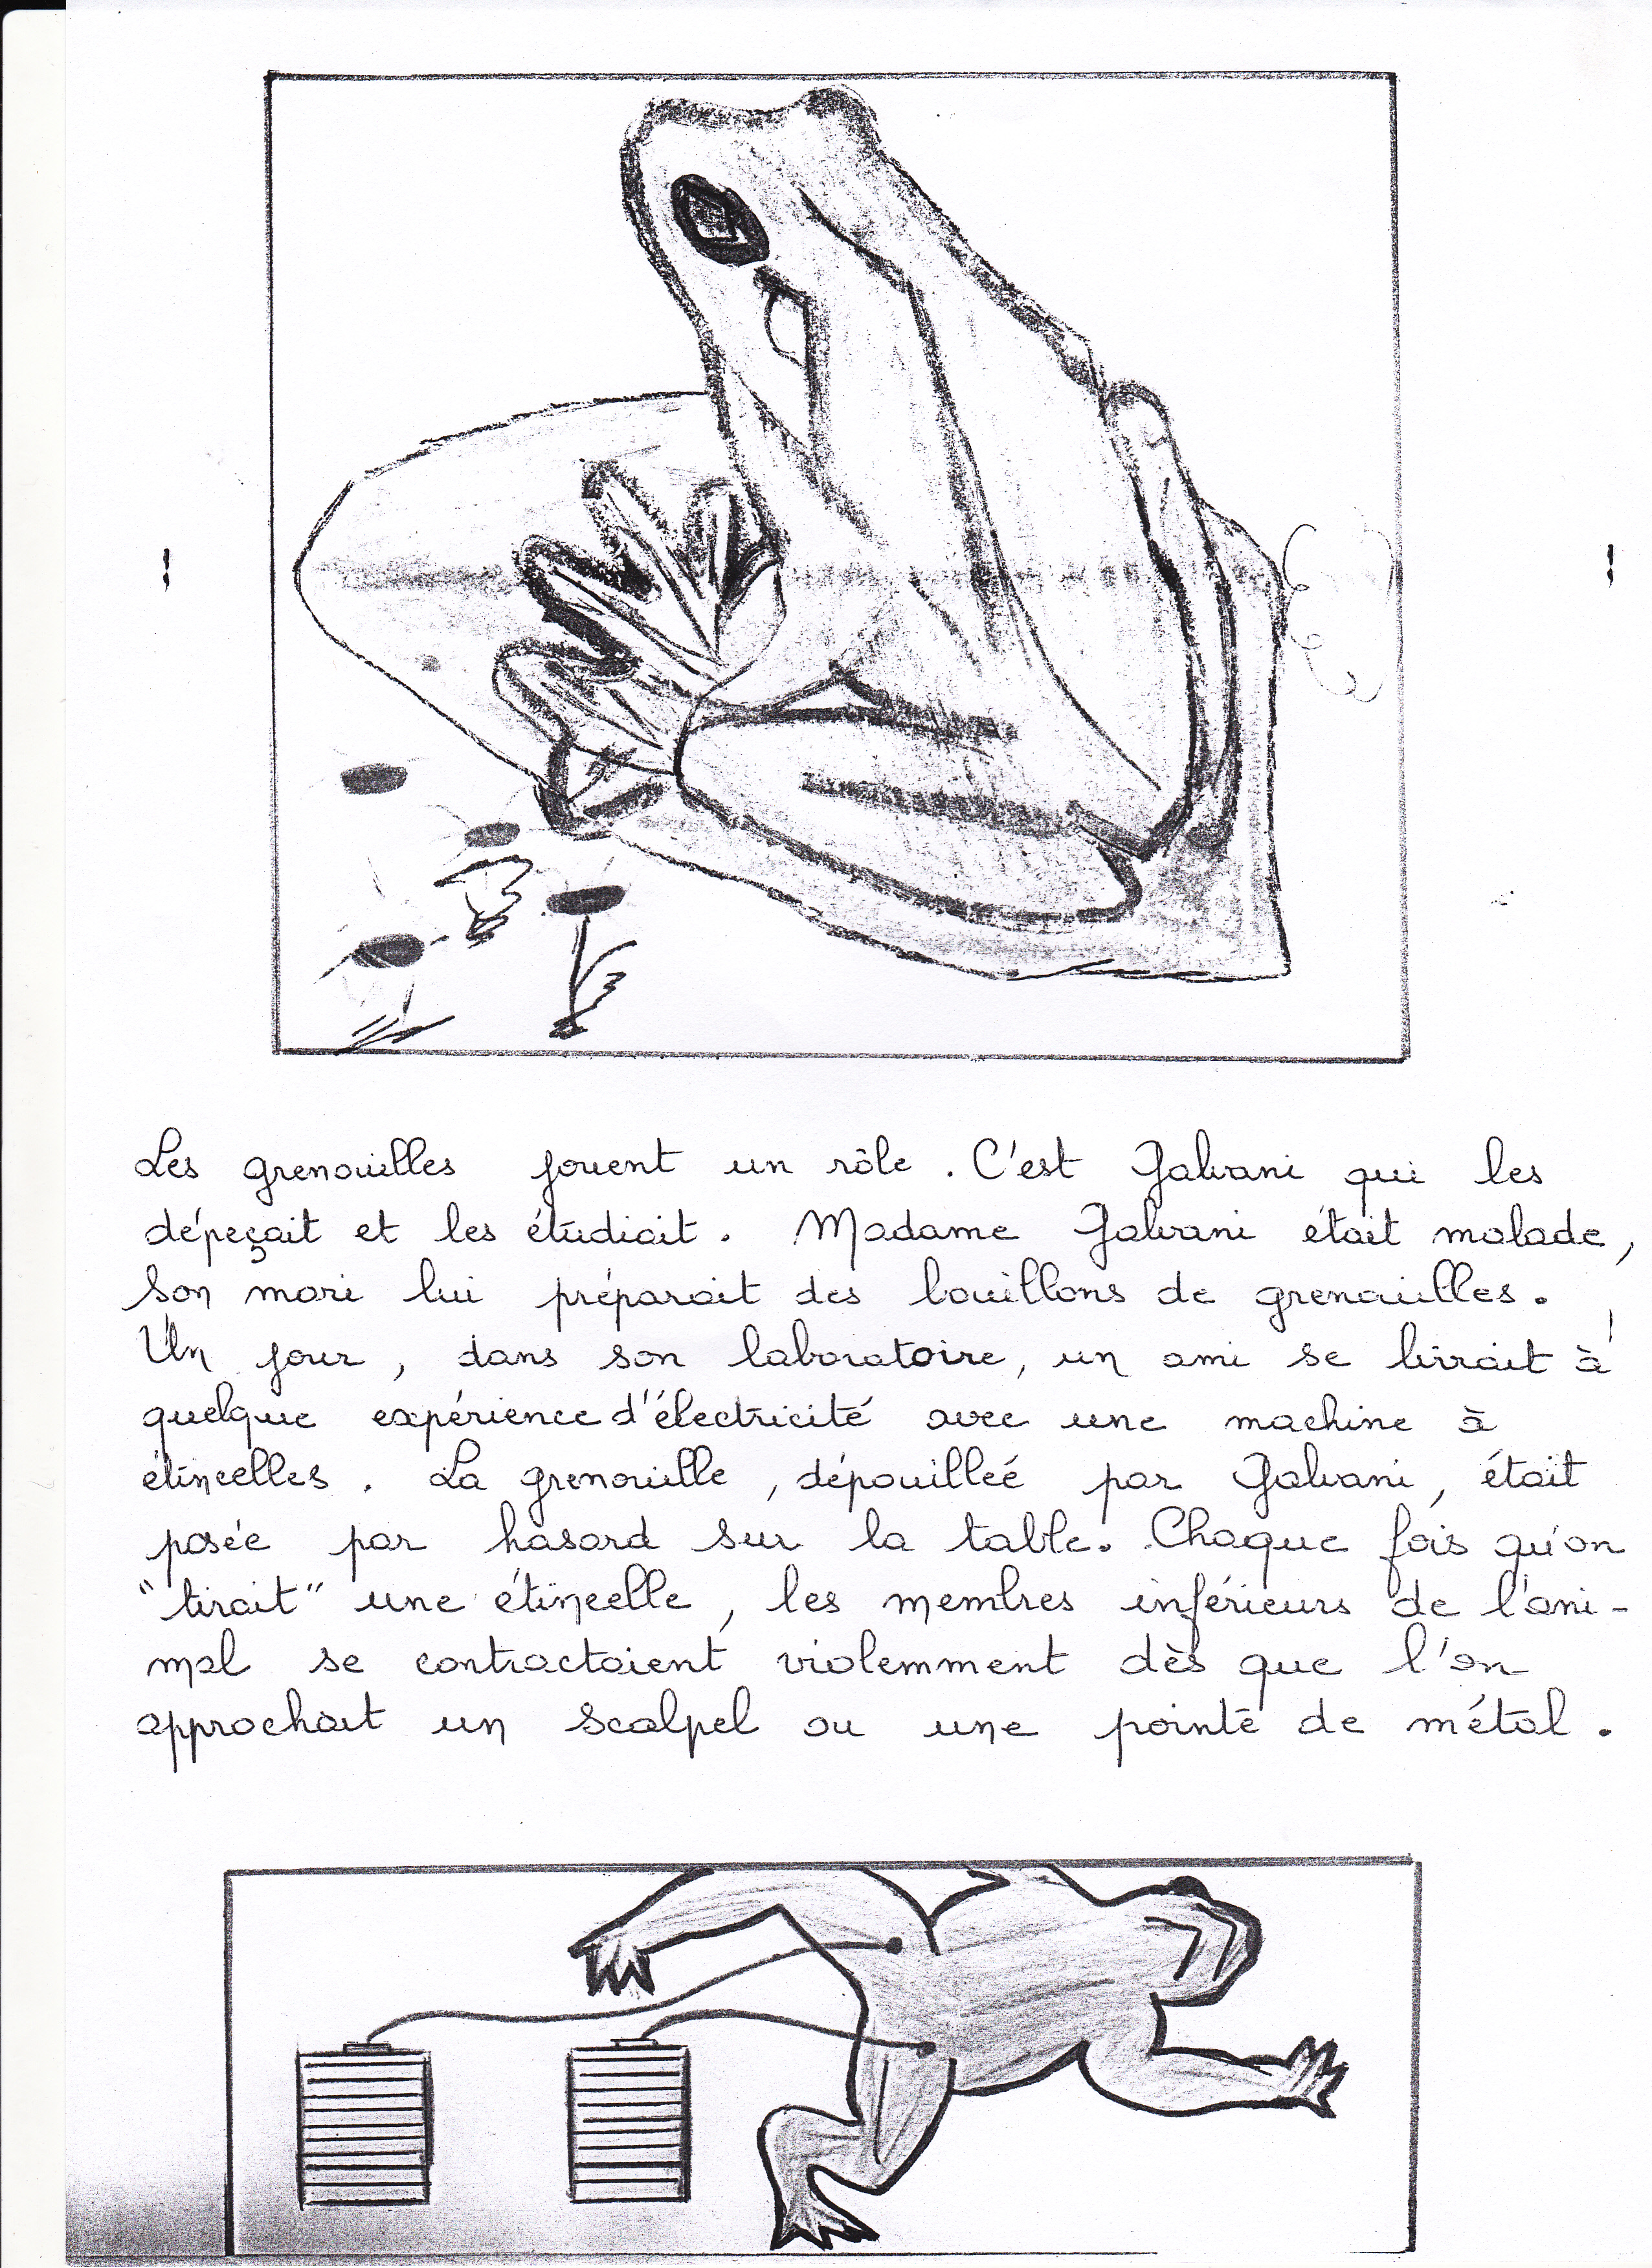 Les grenouilles jouent un rôle. C'est Galvani qui les
dépeçait et les étudiait. Madame Galvani était malade,
son mari lui préparait des bouillons de grenouilles.
Un jour, dans son laboratoire, un ami se livrait à
quelque expérience d'électricité avec une machine à
étincelles. La grenouille, dépouilleé par Galvani, était
posée par hasard sur la table. Chaque fois qu'on
"tirait" une étincelle, les membres inférieurs de l'ani-
mal se contractaient violemment dès que l'on
approchait un scalpel ou une pointe de métal.